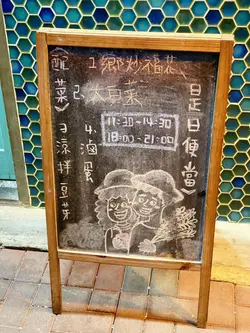 今日便當
配菜
1. 鄉炒福花
2. 大豆菜
3. 涼拌豆芽
4. 滷蛋
11:30-14:30
18:00-21:00